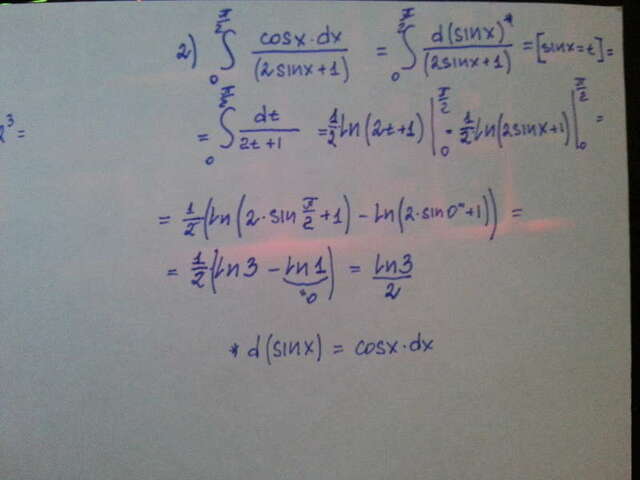 2) ∫₀^{π/2} cosx·dx/(2sinx+1) = ∫₀^{π/2} d(sinx)*/(2sinx+1) = [sinx=t] =
2³ =
= ∫₀^{π/2} dt/(2t+1) = 1/2 ln(2t+1) |₀^{π/2} = 1/2 ln(2sinx+1) |₀^{π/2} =
= 1/2 (ln(2·sin π/2 +1) - ln(2·sin0°+1)) =
= 1/2 (ln3 - ln1) = ln3/2
"0
* d(sinx) = cosx·dx